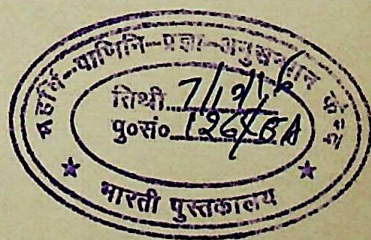 महर्षि-पाणिनि-प्रज्ञा-अनुसन्धान केन्द्र
तिथी 7/12/16
पु०सं० 1264/BA
★ भारती पुस्तकालय ★